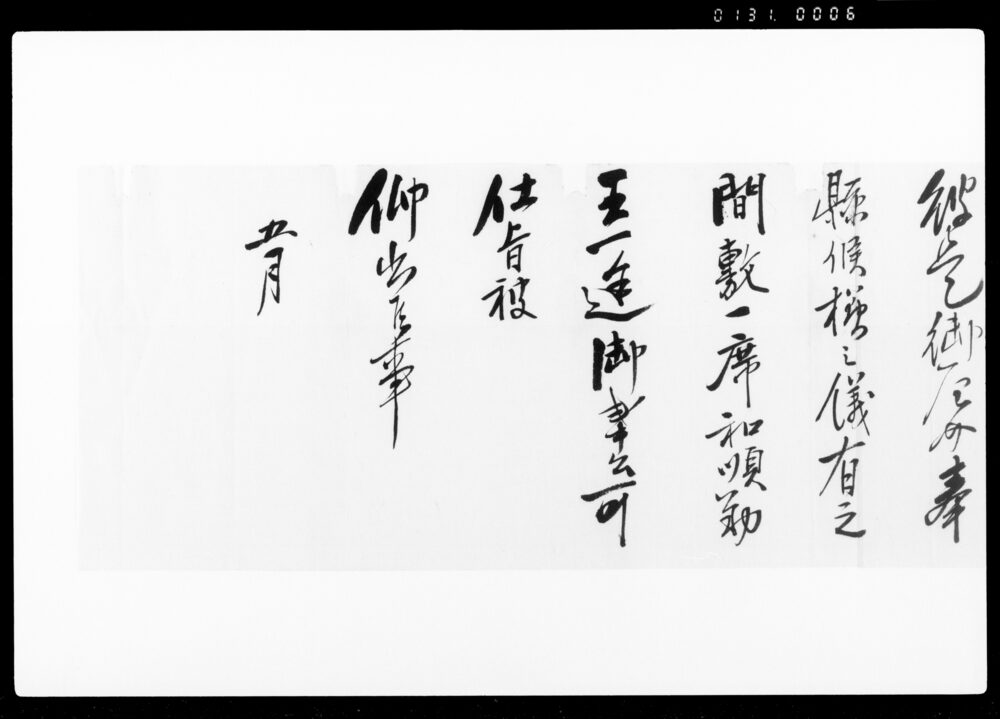 0131. 0006
彼是御厄介奉
縣候様之儀有之
間敷一席和順勤
王一途御奉公可
仕旨被
仰出候事
五月